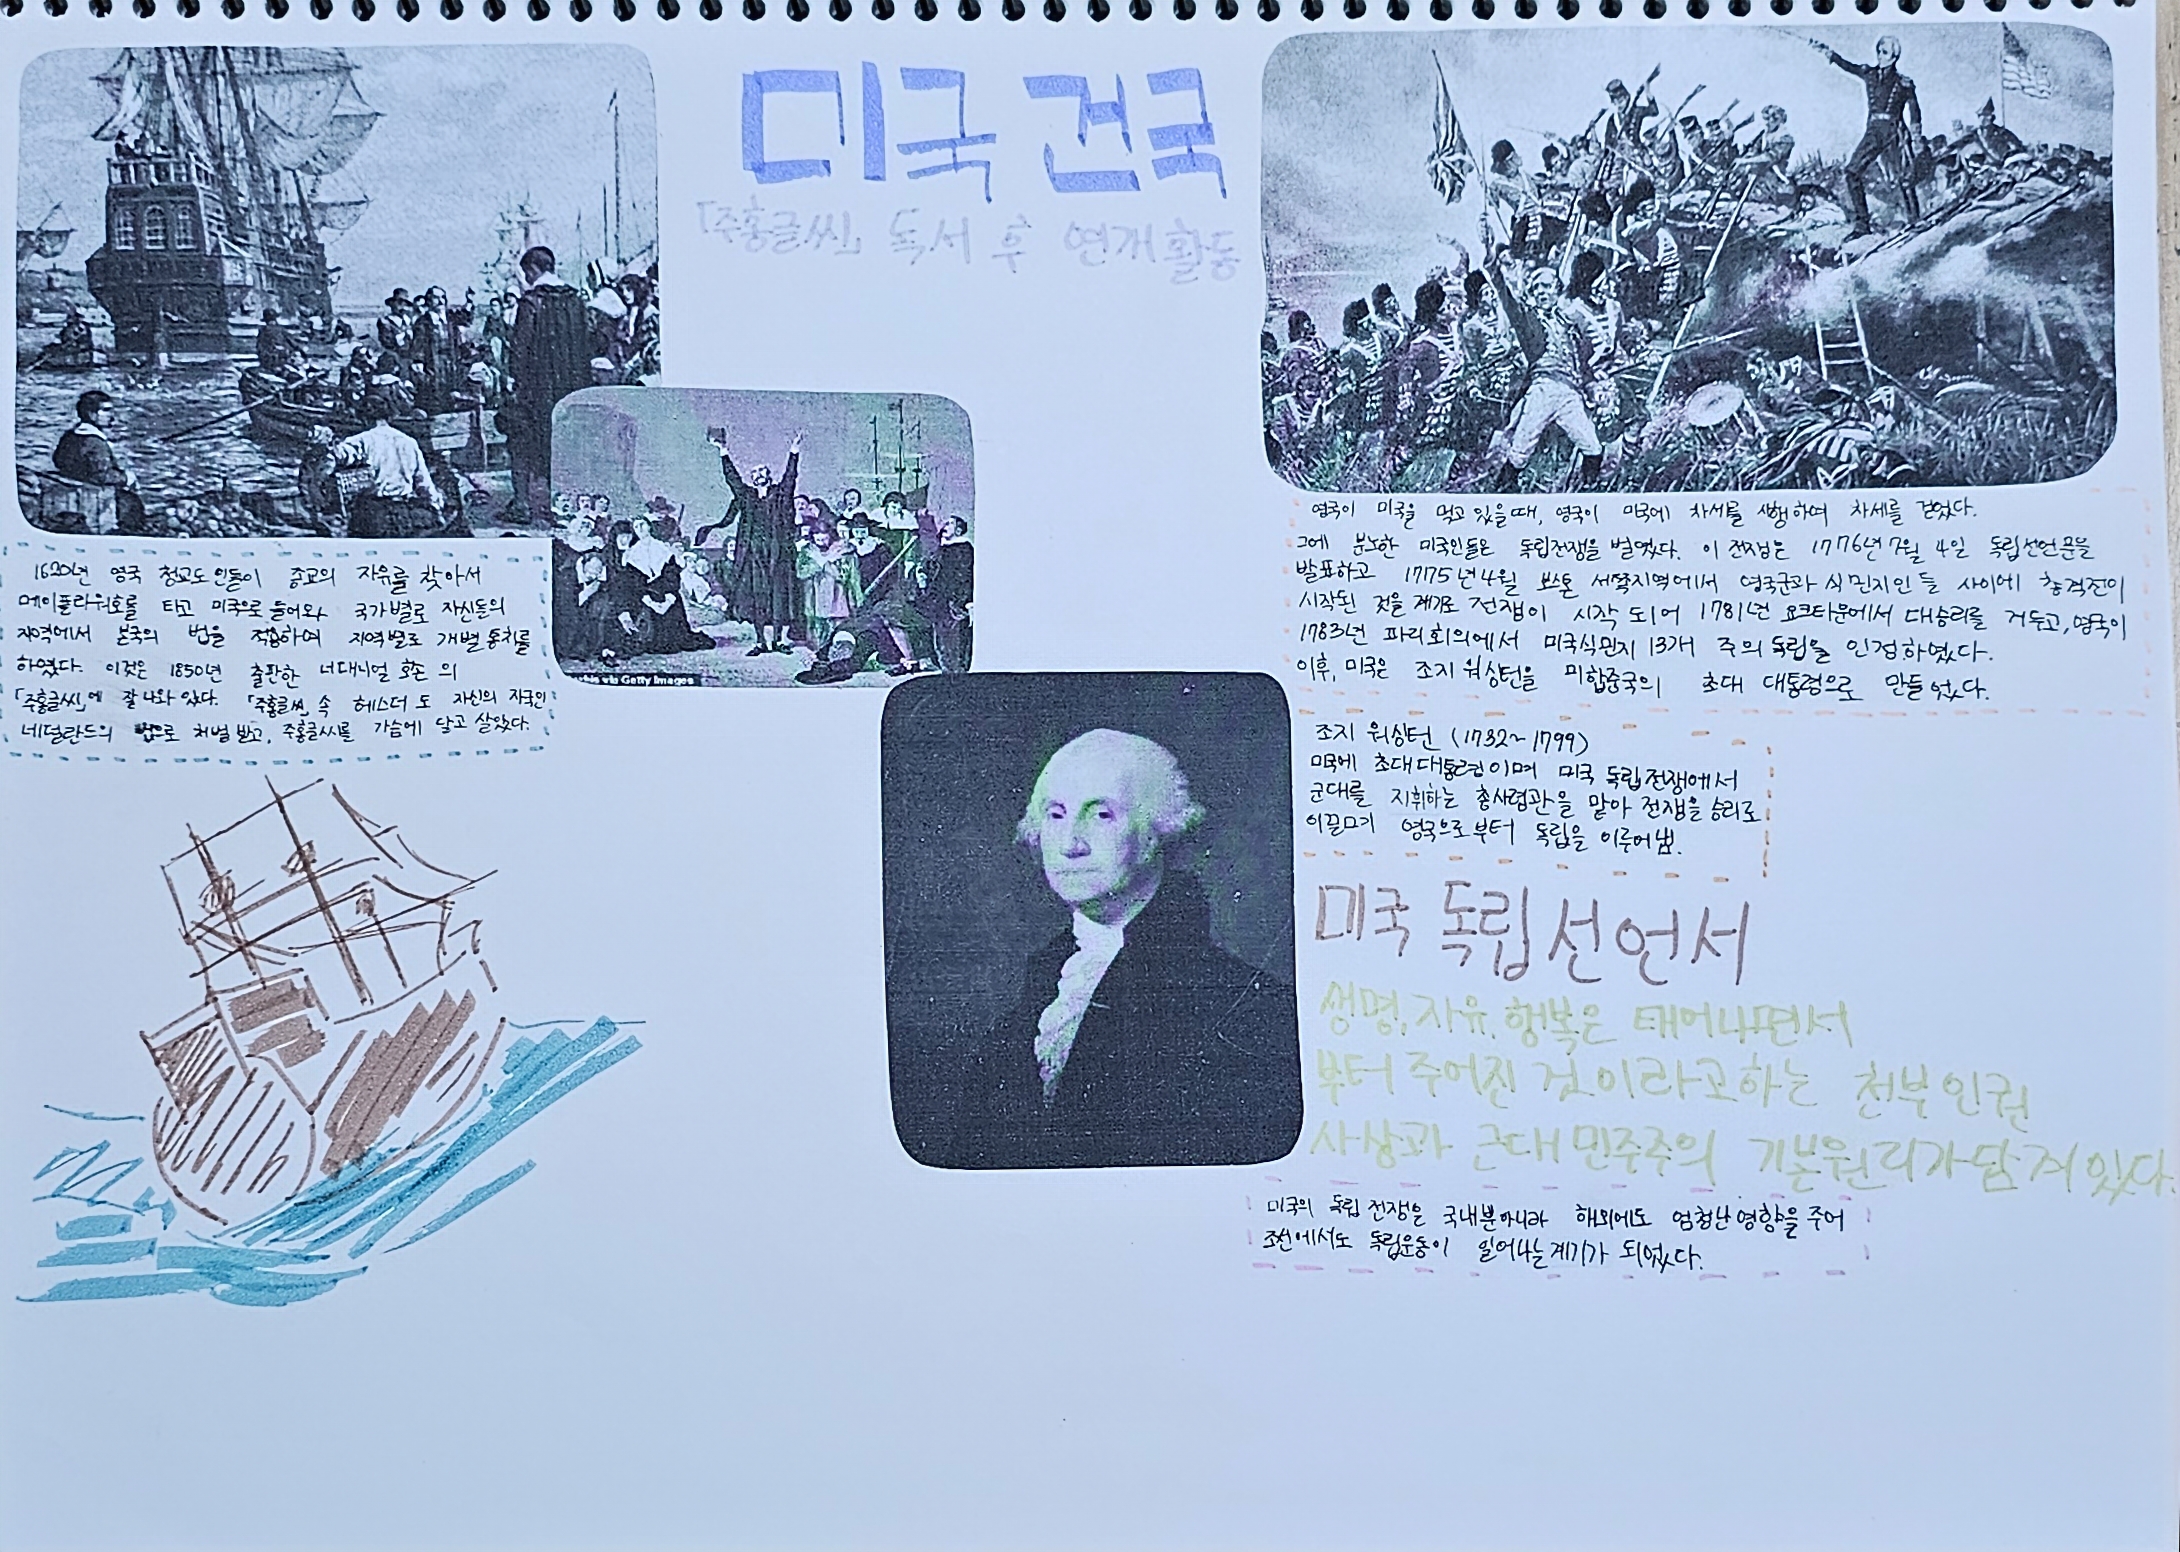 미국 건국
「주홍글씨」 독서 후 연개활동
1620년 영국 청교도인들이 종교의 자유를 찾아서
메이플라워호를 타고 미국으로 들어와 국가별로 자신들의
지역에서 본국의 법을 적용하여 지역별로 개별통치를
하였다. 이것은 1850년 출판한 너대니얼 호손 의
「주홍글씨」에 잘 나와 있다. 「주홍글씨」 속 헤스터 도 자신의 자국인
네덜란드의 법으로 처벌 받고, 주홍글씨를 가슴에 달고 살았다.
via Getty Images
영국이 미국을 먹고 있을때, 영국이 미국에 차세를 시행하여 차세를 걷었다.
그에 분노한 미국인들은 독립전쟁을 벌였다. 이 전쟁은 1776년 7월 4일 독립선언문을
발표하고 1775년 4월 보스톤 서쪽지역에서 영국군과 식민지인들 사이에 총격전이
시작된 것을 계기로 전쟁이 시작 되어 1781년 요크타운에서 대승리를 거두고, 영국이
1783년 파리회의에서 미국식민지 13개 주의 독립을 인정하였다.
이후, 미국은 조지 워싱턴을 미합중국의 초대 대통령으로 만들었다.
조지 워싱턴 (1732~1799)
미국에 초대대통령이며 미국 독립전쟁에서
군대를 지휘하는 총사령관을 맡아 전쟁을 승리로
이끌며 영국으로부터 독립을 이루어냄.
미국 독립선언서
생명, 자유, 행복은 태어나면서
부터 주어진 것이라고하는 천부인권
사상과 근대 민주주의 기본원리가담겨있다.
미국의 독립 전쟁은 국내뿐아니라 해외에도 엄청난영향을주어
조선에서도 독립운동이 일어나는계기가 되었다.